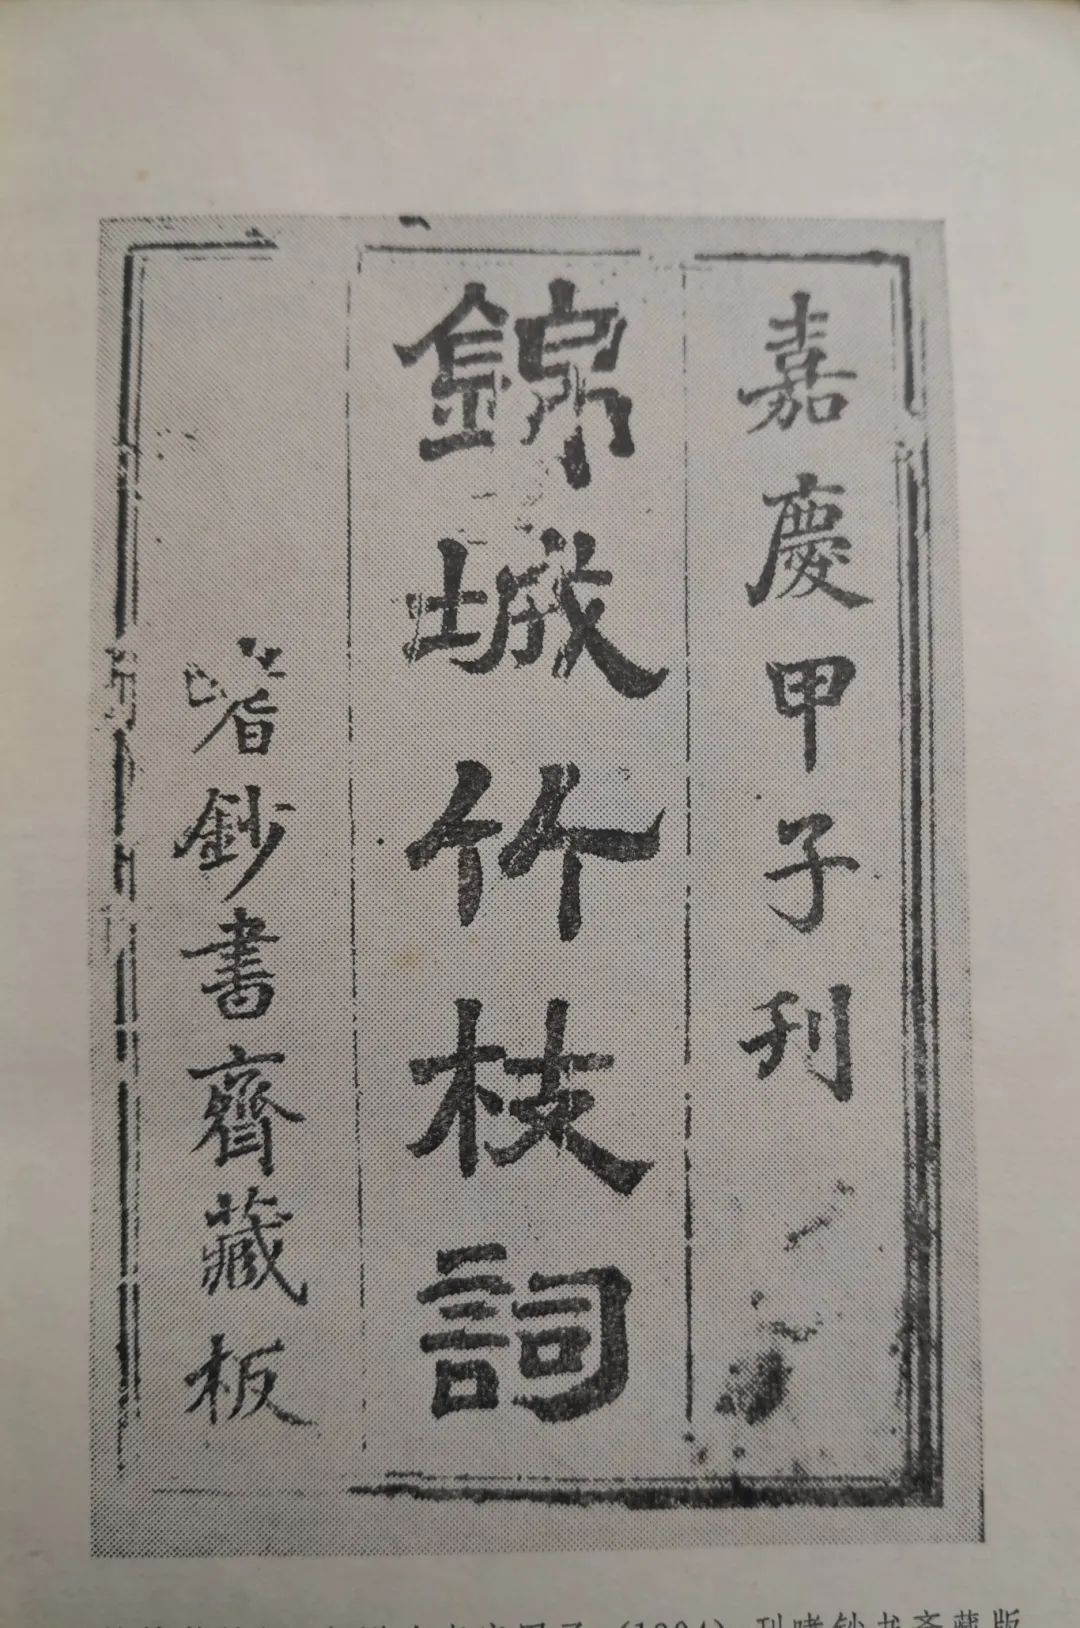 嘉慶甲子刊
錦城竹枝詞
嗜鈔書齋藏板
甲子 (1804) 刊嗜钞书斋藏版